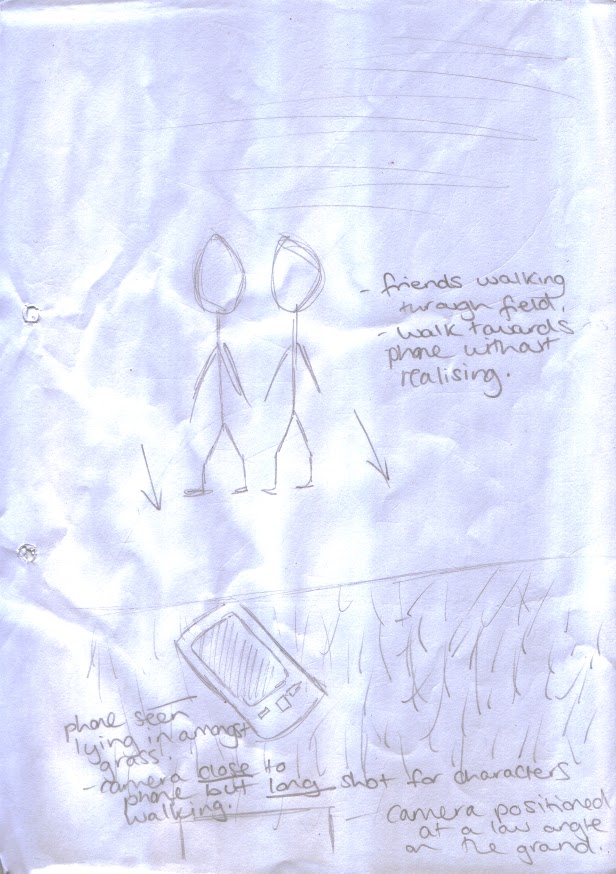 - friends walking
through field.
- walk towards
phone without
realising.
phone seen
lying in amongst
grass.
- camera close to
phone but long shot for characters
walking.
- camera positioned
at a low angle
on the ground.